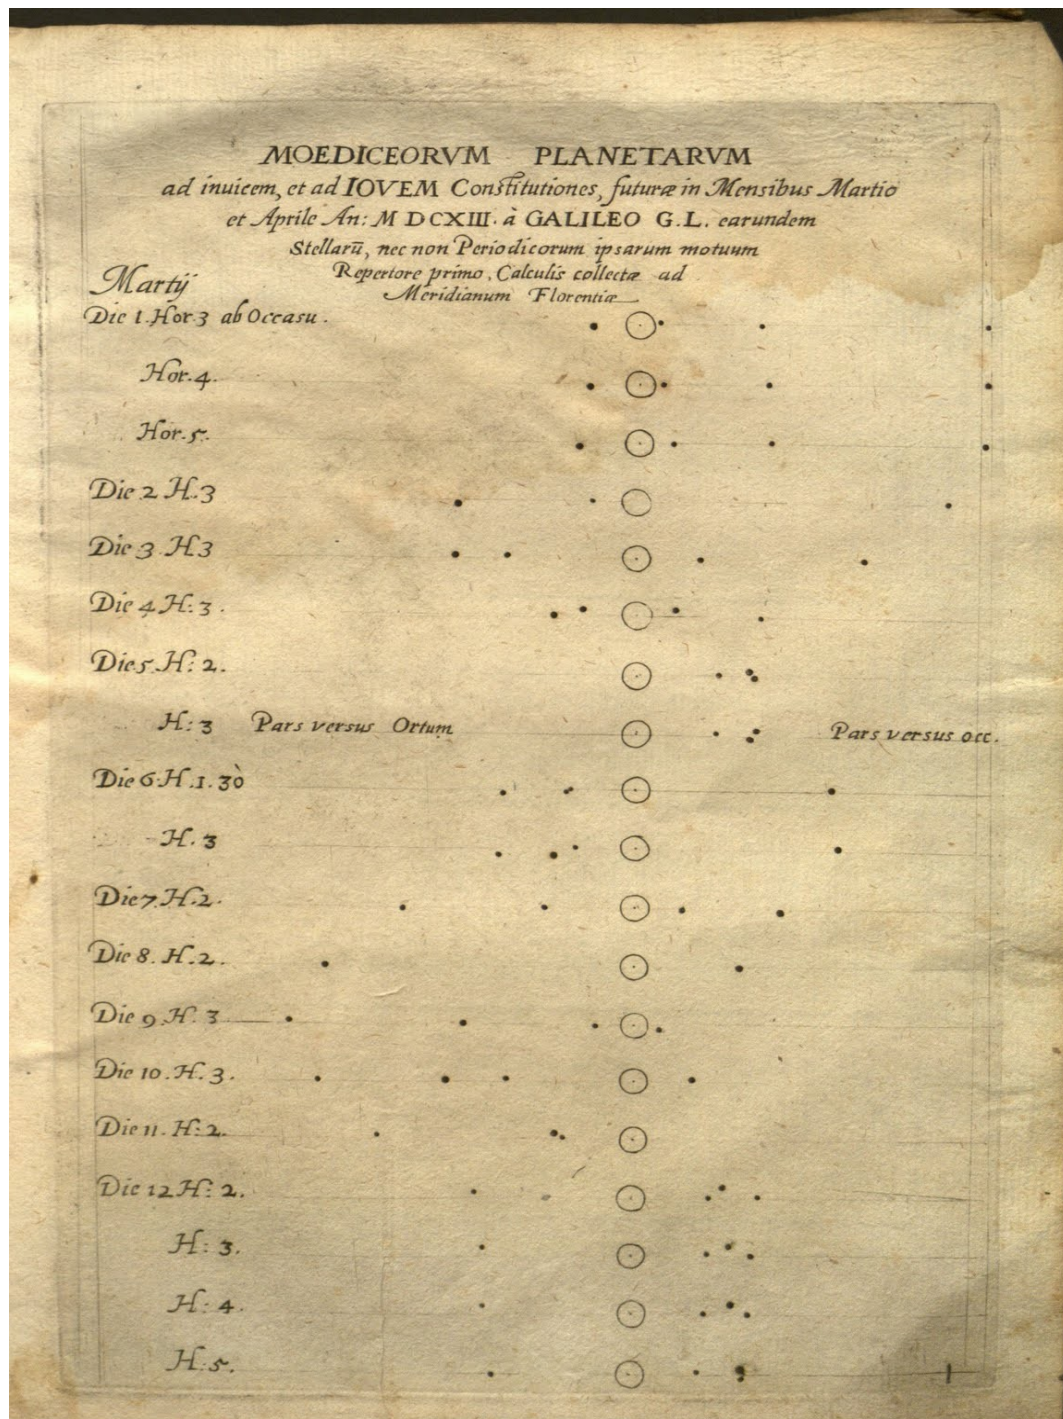 MOEDICEORVM PLANETARVM
ad inuicem, et ad IOVEM Constitutiones, futuræ in Mensibus Martio
et Aprile An: M DCXIII. à GALILEO G.L. earundem
Stellarū, nec non Periodicorum ipsarum motuum
Repertore primo, Calculis collectæ ad
Meridianum Florentiæ
Martij
Die 1. Hor. 3 ab Occasu.
Hor. 4.
Hor. 5.
Die 2 H. 3
Die 3 H. 3
Die 4 H: 3.
Die 5. H: 2.
H: 3 Pars versus Ortum Pars versus occ.
Die 6. H. 1. 30
H. 3
Die 7. H. 2.
Die 8. H. 2.
Die 9. H. 3
Die 10. H. 3.
Die 11. H: 2.
Die 12 H: 2.
H: 3.
H: 4.
H: 5.